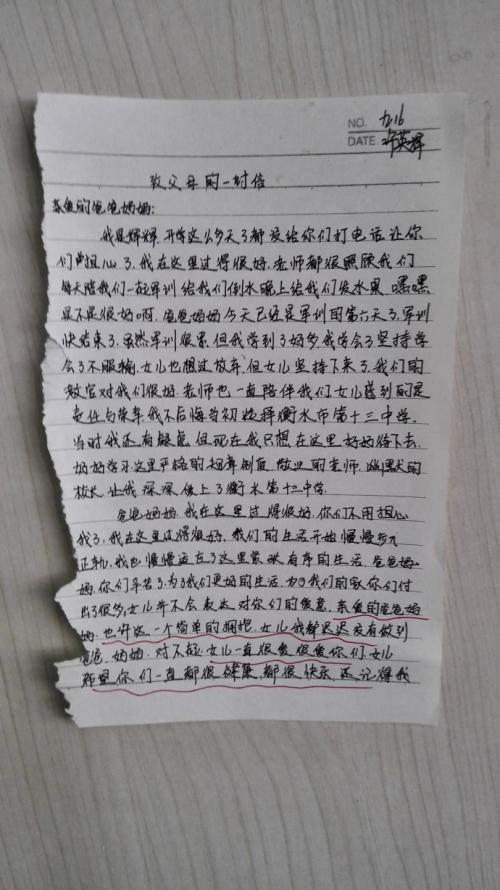 NO. 九16
DATE 许英辉
致父母的一封信
亲爱的爸爸妈妈:
我是辉辉,开学这么多天了都没给你们打电话让你
们担心了,我在这里过得很好,老师都很照顾我们
每天陪我们一起军训给我们倒水晚上给我们发水果,嘿嘿
是不是很好啊,爸爸妈妈今天已经是军训的第六天了,军训
快结束了,虽然军训很累,但我学到了好多,我学会了坚持学
会了不服输,女儿也想过放弃,但女儿坚持下来了,我们的
教官对我们很好,老师也一直陪伴我们,女儿感到的是
责任与荣幸,我不后悔当初选择衡水市第十三中学,
当时我还有疑惑,但现在我只想在这里好好待下去,
好好学习,这里严格的规章制度,敬业的老师,幽默的
校长,让我深深爱上了衡水第十三中学.
爸爸妈妈,我在这里过得很好,你们不用担心
我了,我在这里过得很好,我们的生活开始慢慢步入
正轨,我也慢慢适应了这里紧张有序的生活,爸爸妈
妈,你们辛苦了,为了我们更好的生活,为了我们的家你们付
出了很多,女儿并不会表达对你们的爱意,亲爱的爸爸妈
妈,也许这一个简单的拥抱,女儿我都迟迟没有做到
爸爸,妈妈,对不起,女儿一直很爱很爱你们,女儿
希望你们一直都很健康,都很快乐,还记得我